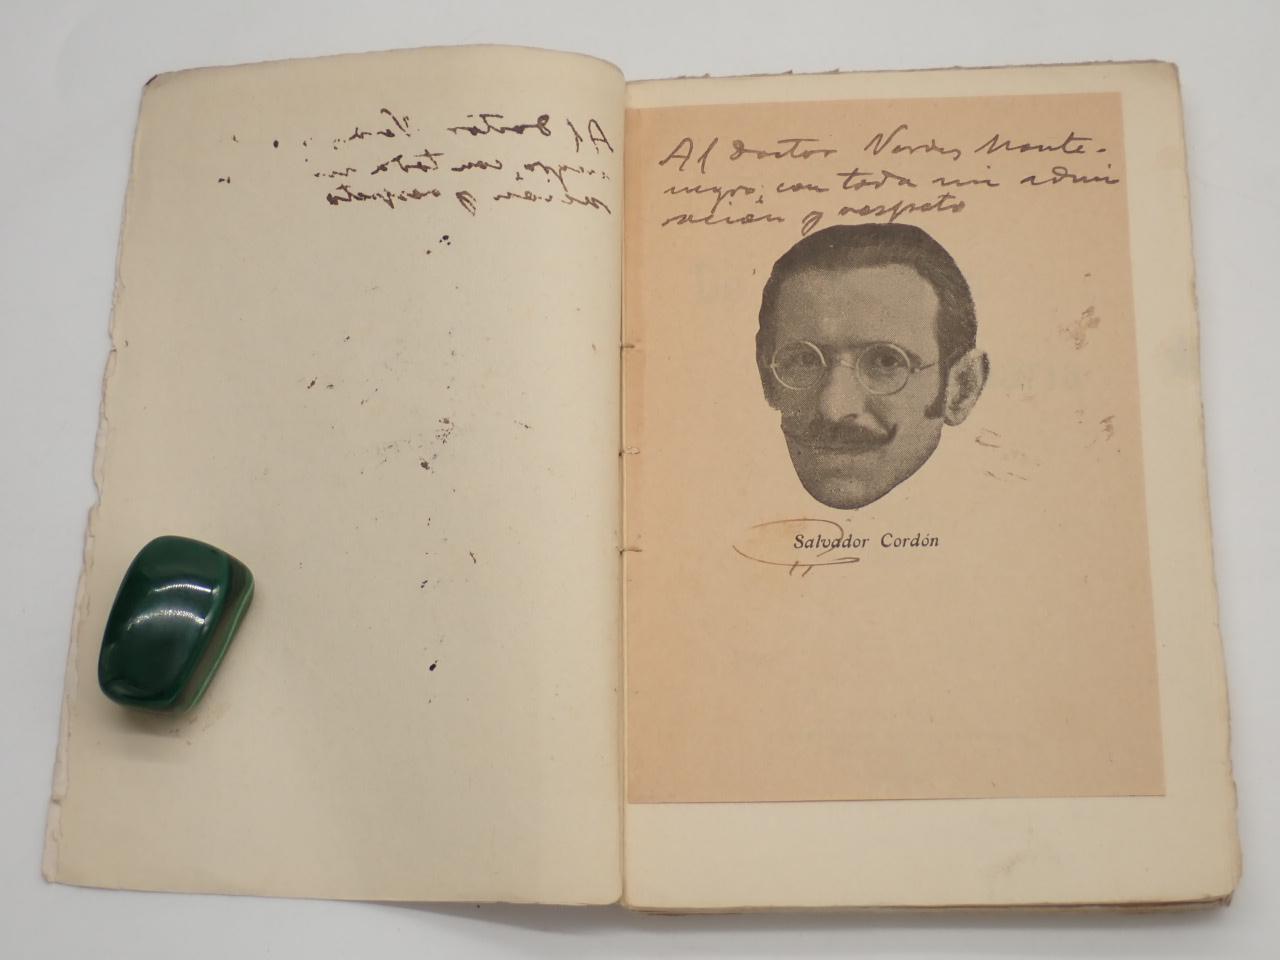 Al doctor Verdes Monte-
negro, con toda mi admi
ración y respeto
Salvador Cordón